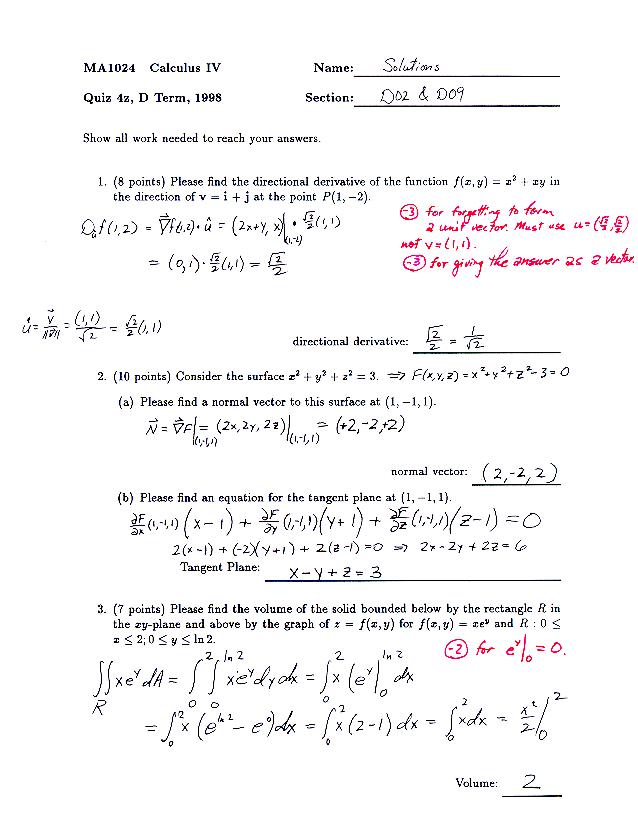 MA1024 Calculus IV Name: Solutions
Quiz 4z, D Term, 1998 Section: D02 & D09
Show all work needed to reach your answers.
1. (8 points) Please find the directional derivative of the function f(x, y) = x² + xy in
the direction of v = i + j at the point P(1, −2).
D_u f(1,2) = ∇⃗f(1,2)·û = (2x+y, x)|_(1,-2) · √2/2 (1,1)
= (0,1)·√2/2 (1,1) = √2/2
-3 for forgetting to form
a unit vector. Must use u = (√2/2, √2/2)
not v = (1,1).
-3 for giving the answer as a vector.
û = v⃗/||v⃗|| = (1,1)/√2 = √2/2 (1,1)
directional derivative: √2/2 = 1/√2
2. (10 points) Consider the surface x² + y² + z² = 3. ⇒ F(x,y,z) = x²+y²+z²-3=0
(a) Please find a normal vector to this surface at (1, −1, 1).
N⃗ = ∇⃗F|_(1,-1,1) = (2x, 2y, 2z)|_(1,-1,1) = (+2,-2,+2)
normal vector: (2,-2,2)
(b) Please find an equation for the tangent plane at (1, −1, 1).
∂F/∂x (1,-1,1)(x-1) + ∂F/∂y (1,-1,1)(y+1) + ∂F/∂z (1,-1,1)(z-1) = 0
2(x-1) + (-2)(y+1) + 2(z-1) = 0 ⇒ 2x-2y+2z=6
Tangent Plane: x-y+z=3
3. (7 points) Please find the volume of the solid bounded below by the rectangle R in
the xy-plane and above by the graph of z = f(x, y) for f(x, y) = xe^y and R : 0 ≤
x ≤ 2; 0 ≤ y ≤ ln 2.
-2 for e^y|_0 = 0.
∬_R xe^y dA = ∫_0^2 ∫_0^ln 2 xe^y dy dx = ∫_0^2 x (e^y|_0^ln 2 dx
= ∫_0^2 x (e^ln 2 - e^0) dx = ∫_0^2 x(2-1) dx = ∫_0^2 x dx = x²/2 |_0^2
Volume: 2